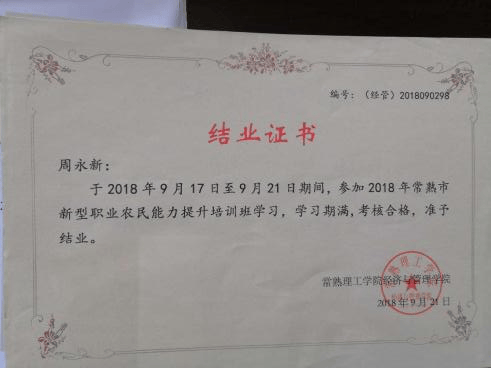 编号：（经管）2018090298
结业证书
周永新：
于2018年9月17日至9月21日期间，参加2018年常熟市
新型职业农民能力提升培训班学习，学习期满，考核合格，准予
结业。
常熟理工学院经济与管理学院
2018年9月21日